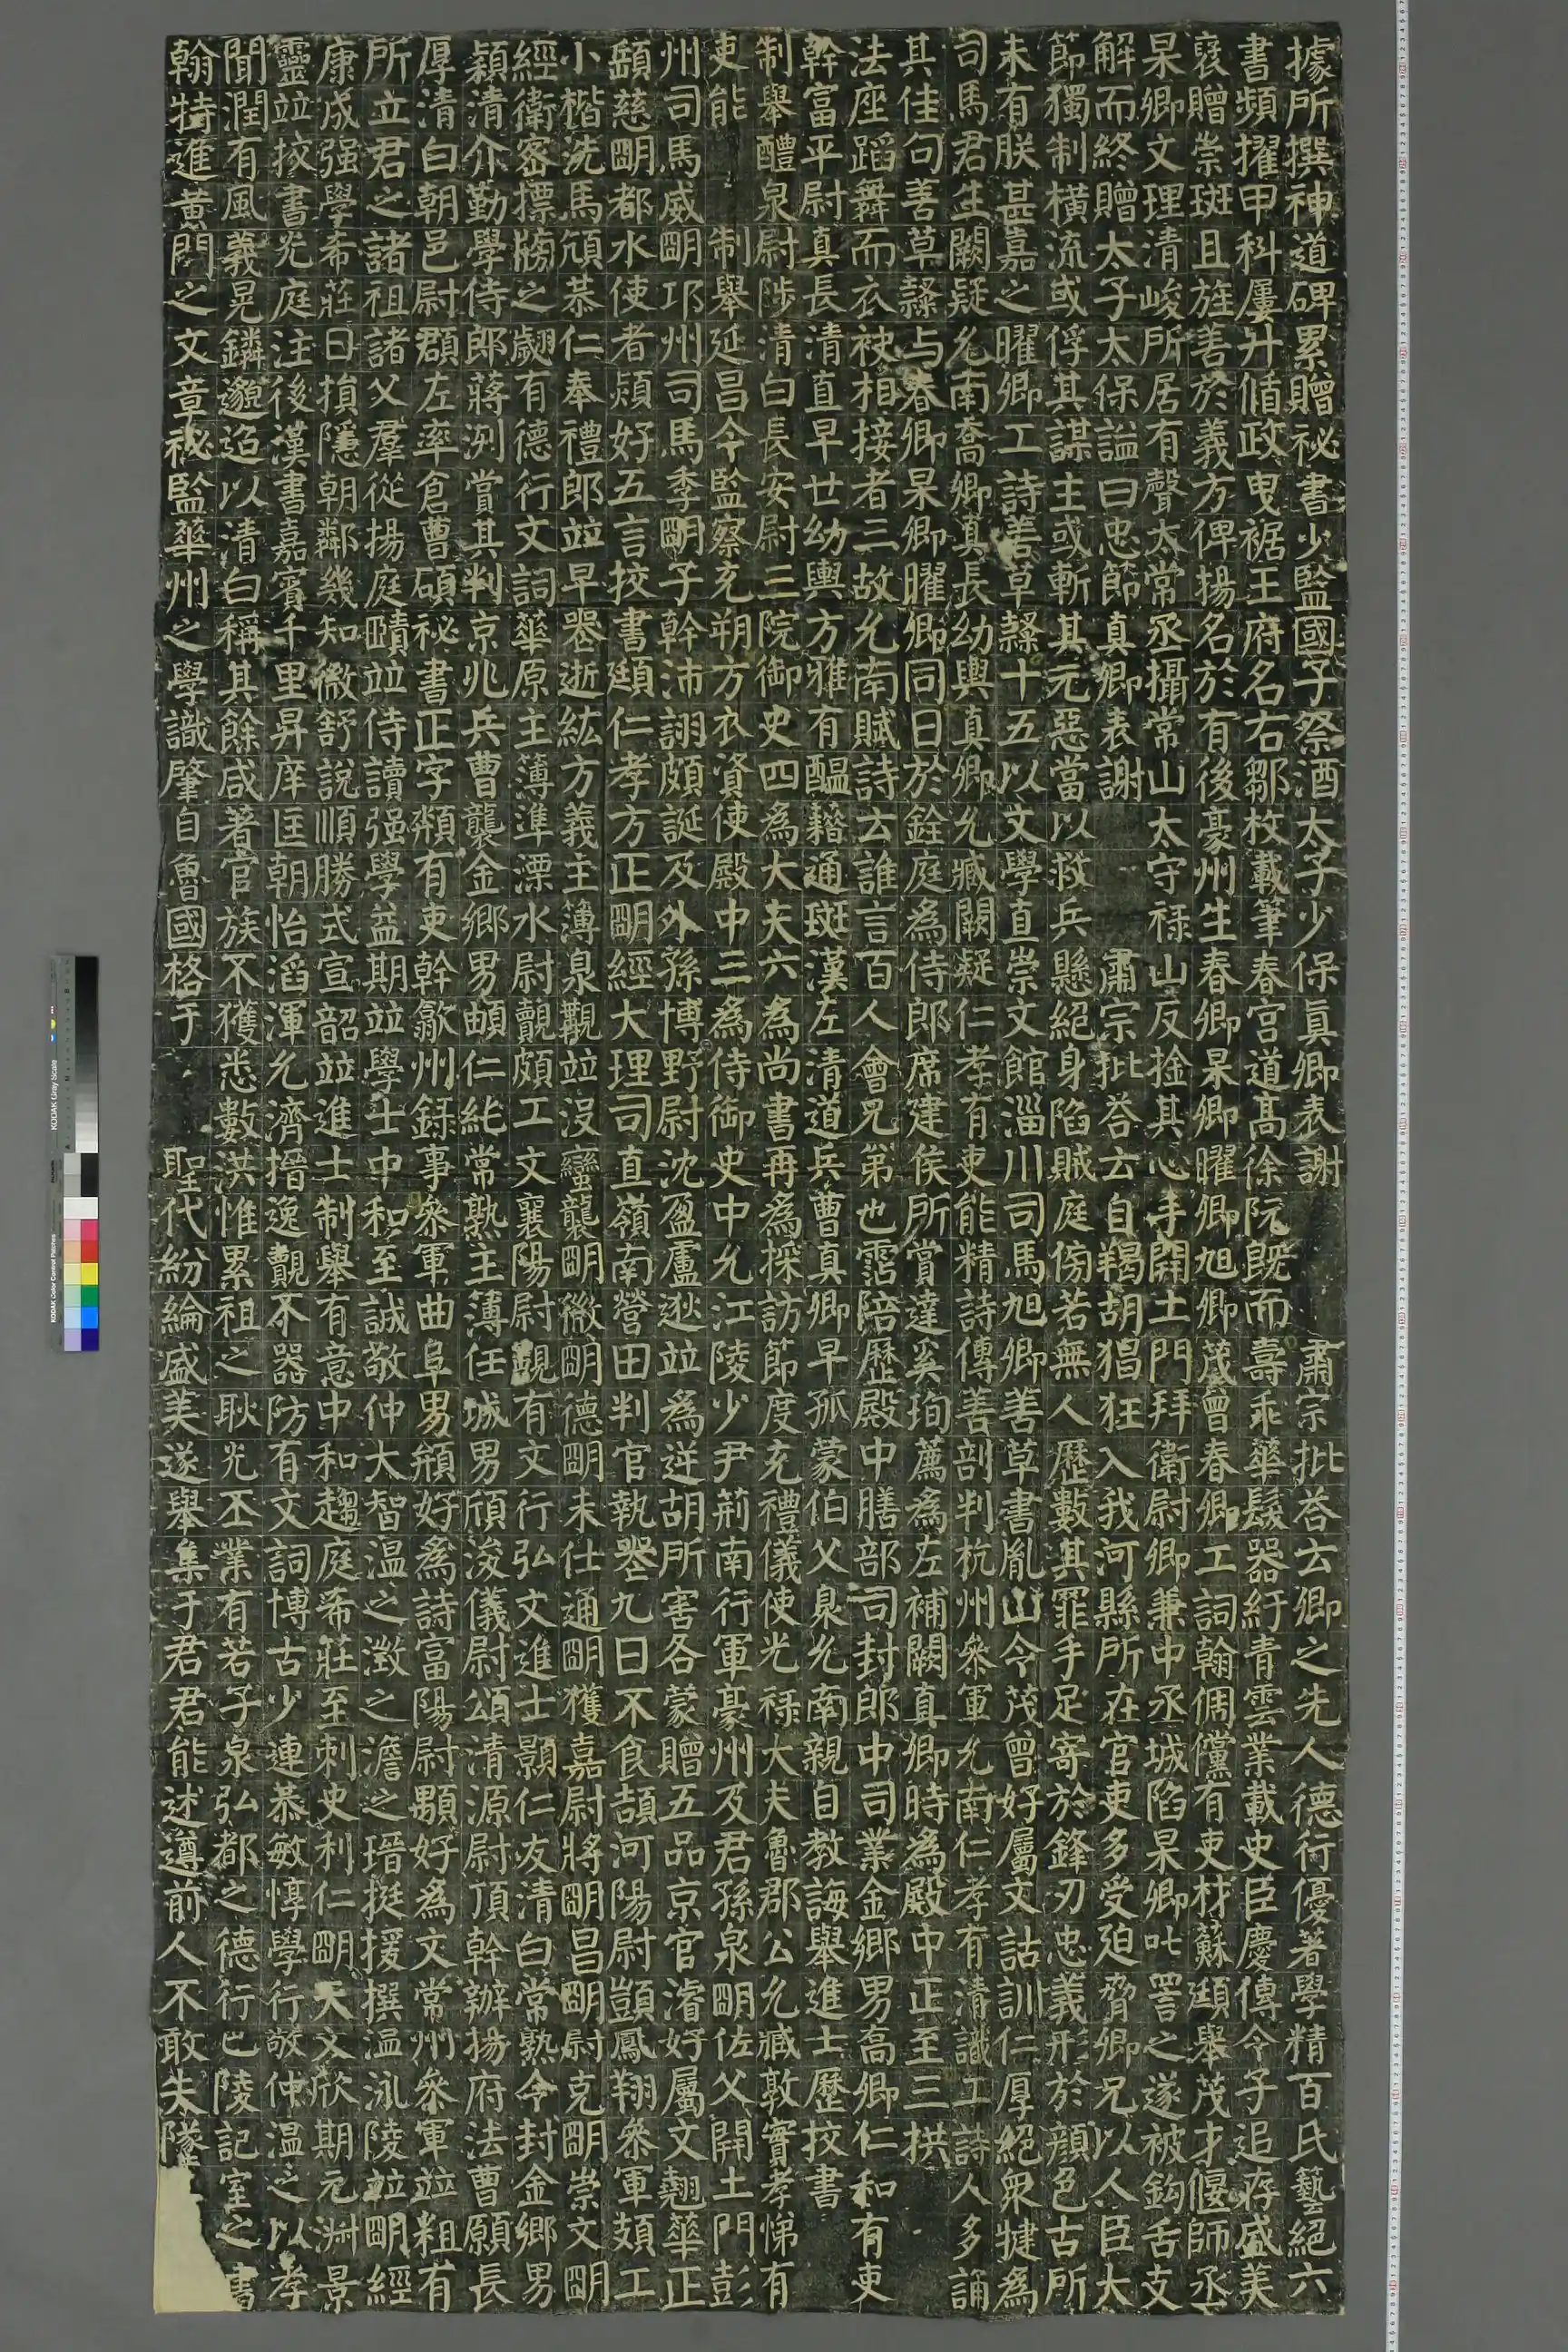 據所撰神道碑累贈祕書少監國子祭酒太子少保真卿表謝肅宗批荅云卿之先人德行優著學精百氏藝絕六
書頻擢甲科屢升憤政曳裾王府名右鄒枚載筆春宮道髙徐阮既而壽乖華髮器紆青雲業載史臣慶傳令子追存盛美
襃贈崇班且旌善於義方俾揚名於有後豪州生春卿杲卿曜卿旭卿茂曾春卿工詞翰倜儻有吏材蘇頲舉茂才偃師丞
杲卿文理清峻所居有聲太常丞攝常山太守祿山反捦其心手開土門拜衛尉卿兼中丞城陷杲卿叱詈之遂被鈎舌支
解而終贈太子太保諡曰忠節真卿表謝肅宗批荅云自羯胡猖狂入我河縣所在官吏多受迫脅卿兄以人臣大
節獨制橫流或俘其謀主或斬其元惡當以救兵懸絕身陷賊庭傍若無人歷數其罪手足寄於鋒刃忠義形於顏色古所
未有朕甚嘉之曜卿工詩善草隸十五以文學直崇文館淄川司馬旭卿善草書胤山令茂曾好屬文詁訓仁厚絕衆犍為
司馬君生闕疑允南喬卿真長幼輿真卿允臧闕疑仁孝有吏能精詩傳善剖判杭州參軍允南仁孝有清識工詩人多誦
其佳句善草隸与春卿杲卿曜卿同日於銓庭為侍郎席建侯所賞達奚珣薦為左補闕真卿時為殿中正至三拱
法座蹈舞而衣袂相接者三故允南賦詩云誰言百人會兄弟也霑陪歷殿中膳部司封郎中司業金鄉男髙卿仁和有吏
幹富平尉真長清直早世幼輿方雅有醖藉通班漢左清道兵曹真卿早孤蒙伯父臮允南親自教誨舉進士歷校書
制舉醴泉尉陟清白長安尉三院御史四為大夫六為尚書再為採訪節度充禮儀使光祿大夫魯郡公允臧敦實孝悌有
吏能制舉延昌令監察充朔方衣資使殿中三為侍御史中允江陵少尹荊南行軍豪州及君孫泉明佐父開土門彭
州司馬威明邛州司馬季明子幹沛詡頗誕及外孫博野尉沈盈盧逖並為逆胡所害各蒙贈五品京官濬好屬文翹華正
顓慈明都水使者熲好五言校書頲仁孝方正明經大理司直嶺南營田判官執器九日不食頡河陽尉顗鳳翔參軍頍工
小楷洗馬頎恭仁奉禮郎並早器逝紘方義主簿泉覿並沒蠻襲明徽明德明未仕通明獲嘉尉將明昌明尉克明崇文明
經衛密摽牓之翽有德行文詞華原主薄準溧水尉覿頗工文襄陽尉覬有文行弘文進士顥仁友清白常熟令封金鄉男
潁清介勤學侍郎蔣洌賞其判京兆兵曹襲金鄉男頔仁純常熟主簿任城男頎浚儀尉頌清源尉頂幹辦揚府法曹願長
厚清白朝邑尉頵左率倉曹碩祕書正字頪有吏幹歙州録事參軍曲阜男頠好為詩富陽尉顒好為文常州參軍並粗有
所立君之諸祖諸父羣從揚庭賾並侍讀强學益期並學士中和至誠敬仲大智温之澂之澹之瑨挺援撰温泳陵並明經
康成强學希莊日損隱朝鄰幾知微舒說順勝式宣韶並進士制舉有意中和趨庭希莊至刺史利仁明天文欣期元淵景
靈並挍書光庭注後漢書嘉賓千里昇庠匡朝怡滔渾允濟搢逸覿不器防有文詞博古少連恭敏惇學行敬仲温之以孝
聞潤有風義晃鏻邈迢以清白稱其餘咸著官族不獲悉數洪惟累祖之耿光丕業有若子泉弘都之德行巴陵記室之書
翰特進黃門之文章祕監華州之學識肇自魯國格于聖代紛綸盛美遂舉集于君君能述遵前人不敢失墜